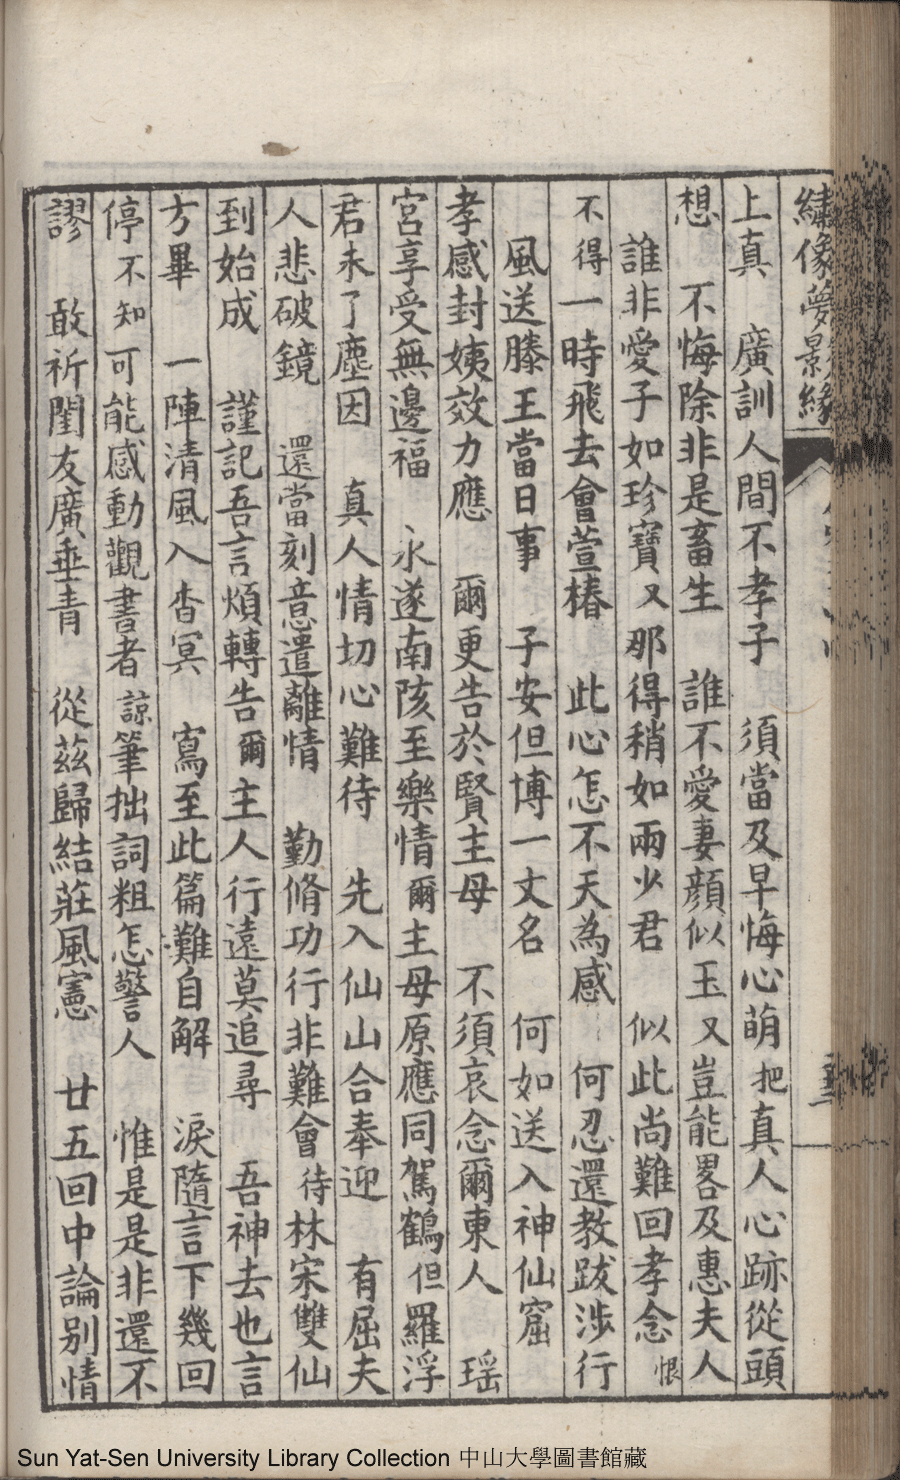 繡像夢影緣
上真　廣訓人間不孝子　須當及早悔心萌把真人心跡從頭
想　不悔除非是畜生　誰不愛妻顏似玉又豈能畧及惠夫人
誰非愛子如珍寶又那得稍如兩少君　似此尚難回孝念恨
不得一時飛去會萱椿　此心怎不天為感　何忍還教跋涉行
風送滕王當日事　子安但博一丈名　何如送入神仙窟
孝感封姨效力應　爾更告於賢主母　不須哀念爾東人　瑶
宮享受無邊福　永遂南陔至樂情爾主母原應同駕鶴但羅浮
君未了塵因　真人情切心難待　先入仙山合奉迎　有屈夫
人悲破鏡　還當刻意遣離情　勤脩功行非難會待林宋雙仙
到始成　謹記吾言煩轉告爾主人行遠莫追尋　吾神去也言
方畢　一陣清風入杳冥　寫至此篇難自解　淚隨言下幾回
停不知可能感動觀書者諒筆拙詞粗怎警人　惟是是非還不
謬　敢祈閨友廣垂青　從茲歸結莊風憲　廿五回中論別情
Sun Yat-Sen University Library Collection 中山大學圖書館藏